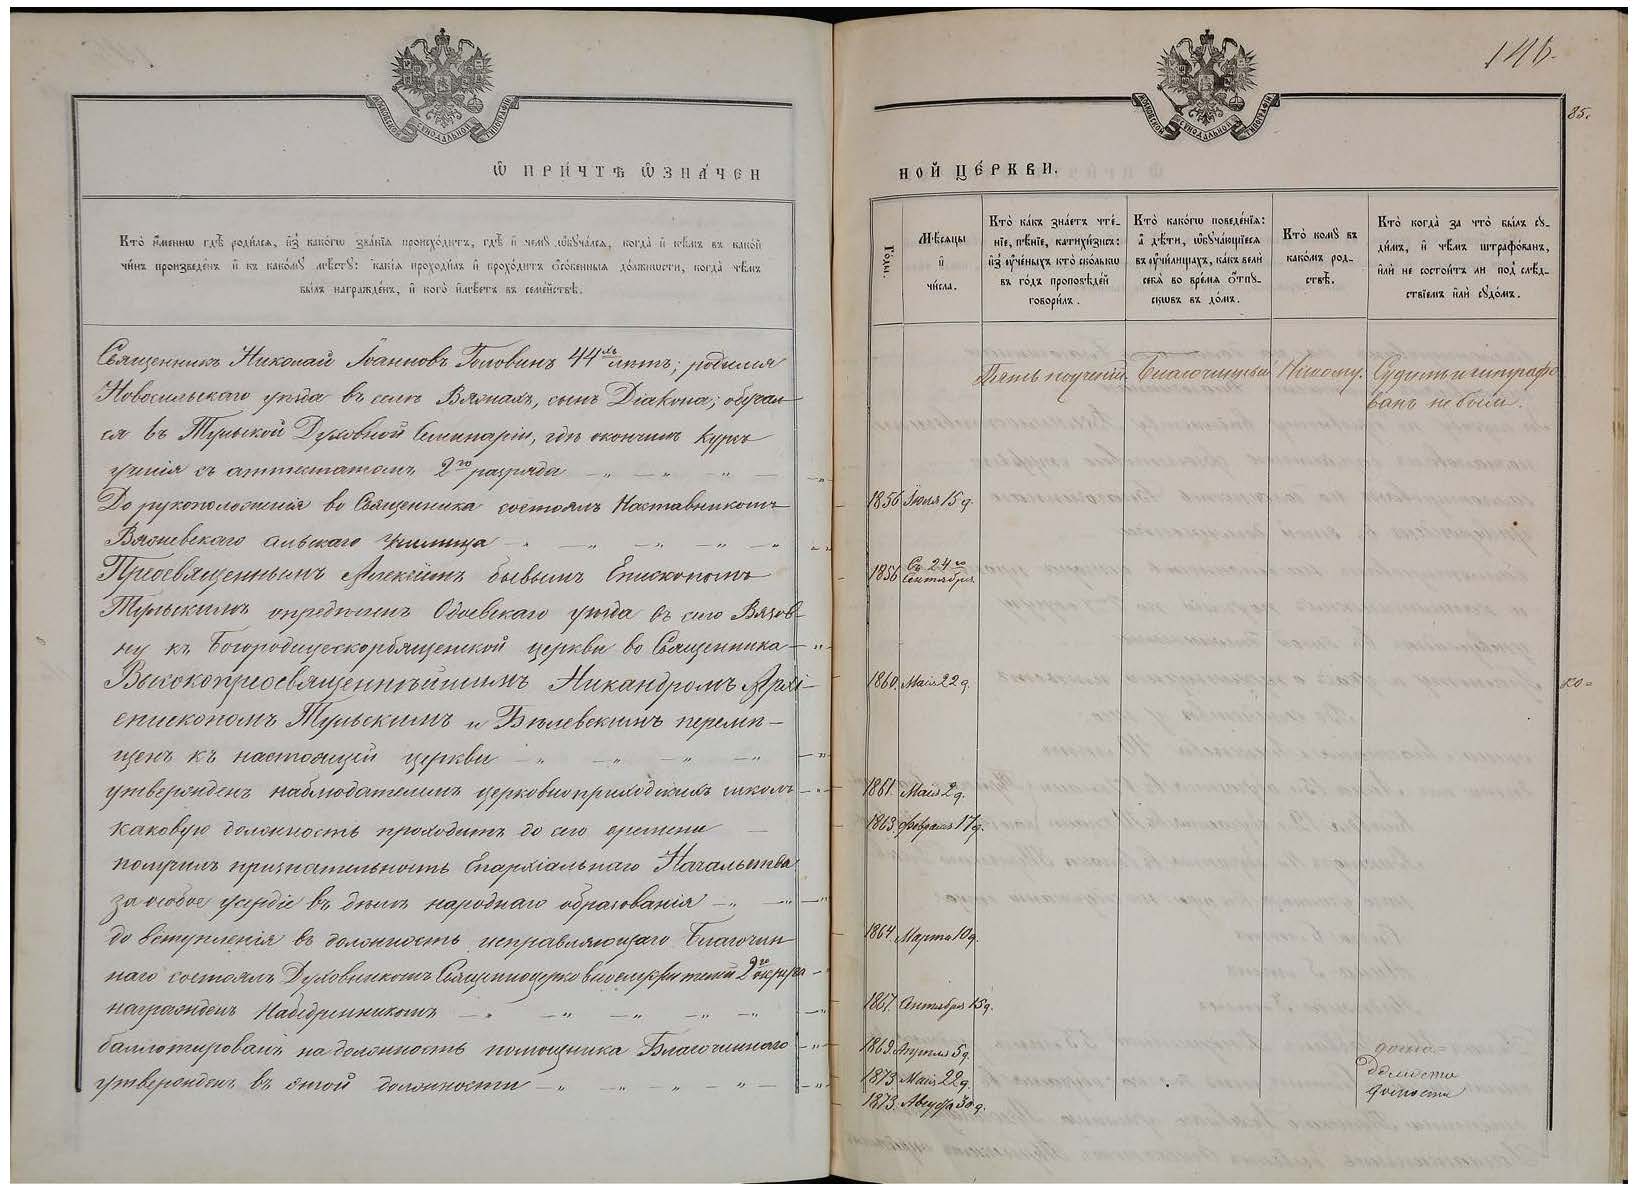 МОСКОВСКОЙ СѴНОДАЛЬНОЙ ТИПОГРАФІИ
Ѡ ПРИ́ЧТѢ Ѡ҆ЗНА́ЧЕН
Кто̀ и҆́меннѡ гдѣ̀ роди́лсѧ, и҆з̾ како́гѡ зва́нїѧ происхо́дитъ, гдѣ̀ и҆ чемꙋ̀ ѡ҆бꙋча́лсѧ, когда̀ и҆ кѣ́мъ въ како́й
чи́нъ произведе́нъ и҆ къ како́мꙋ мѣ́стꙋ: какі̑ѧ проходи́лъ и҆ прохо́дитъ ѻ҆со́бенныѧ до́лжности, когда̀ чѣ́мъ
бы́лъ награжде́нъ, и҆ кого̀ и҆мѣ́етъ въ семе́йствѣ.
Священникъ Николай Іоанновъ Головинъ 44хъ лѣтъ; родился
Новосильскаго уѣзда въ селѣ Вяжахъ, сынъ Діакона; обучал-
ся въ Тульской Духовной Семинаріи, гдѣ окончилъ курсъ
ученія съ аттестатомъ 2го разряда — „ — „ — „ —
До рукоположенія во Священника состоялъ Наставникомъ
Вяжевскаго сельскаго училища — „ — „ — „ — „
Преосвященнымъ Алексіемъ бывшимъ Епископомъ
Тульскимъ опредѣленъ Одоевскаго уѣзда въ село Вязов-
ну къ Богородицескорбященской церкви во Священника — „
Высокопреосвященнѣйшимъ Никандромъ Архі-
епископомъ Тульскимъ и Бѣлевскимъ перемѣ-
щенъ къ настоящей церкви — „ — „ — „ — „
утвержденъ наблюдателемъ церковноприходскихъ школъ
каковую должность проходитъ до сего времени —
получилъ признательность Епархіальнаго Начальства
за особое усердіе въ дѣлѣ народнаго образованія — „ — „
до вступленія въ должность исправляющаго Благочин-
наго состоялъ Духовникомъ Священноцерковнослужителей 2го округа
награжденъ Набедренникомъ — „ — „ — „ — „
баллотированъ на должность помощника Благочиннаго
утвержденъ въ этой должности — „ — „ — „ — „
146.
85.
МОСКОВСКОЙ СѴНОДАЛЬНОЙ ТИПОГРАФІИ
НОЙ ЦЕ́РКВИ.
Го́ды.
Мѣ́сѧцы
и҆
чи́сла.
Кто̀ ка́къ зна́етъ чте́-
нїе, пѣ́нїе, катихи́зисъ:
и҆з̾ ᲂу҆че́ныхъ кто̀ ско́лькѡ
въ го́дъ проповѣ́дей
говори́лъ.
Кто̀ како́гѡ поведе́нїѧ:
а҆ дѣ́ти, ѡ҆бꙋча́ющїесѧ
въ ᲂу҆чи́лищахъ, ка́къ велѝ
себѐ во вре́мѧ ѻ҆тпꙋ-
скѡвъ въ до́мъ.
Кто̀ комꙋ̀ въ
како́мъ род-
ствѣ̀.
Кто̀ когда̀ за что̀ бы́лъ сꙋ-
ди́мъ, и҆ чѣ́мъ штрафо́ванъ,
и҆лѝ не состои́тъ ли под̾ слѣ́д-
ствїемъ и҆лѝ сꙋдо́мъ.
Пять поученій. Благочиннымъ Никому. Судимъ и штрафо
ванъ не былъ.
1856 Іюля 15 д.
1856 Съ 24го
Сентября
1860. Маія 22 д.
1861. Маія 2 д.
1863. Февраля 17 д.
1864. Марта 10 д.
1867. Сентября 15 д.
1869. Апрѣля 5 д.
1873. Маія 22 д.
1873. Августа 30 д.